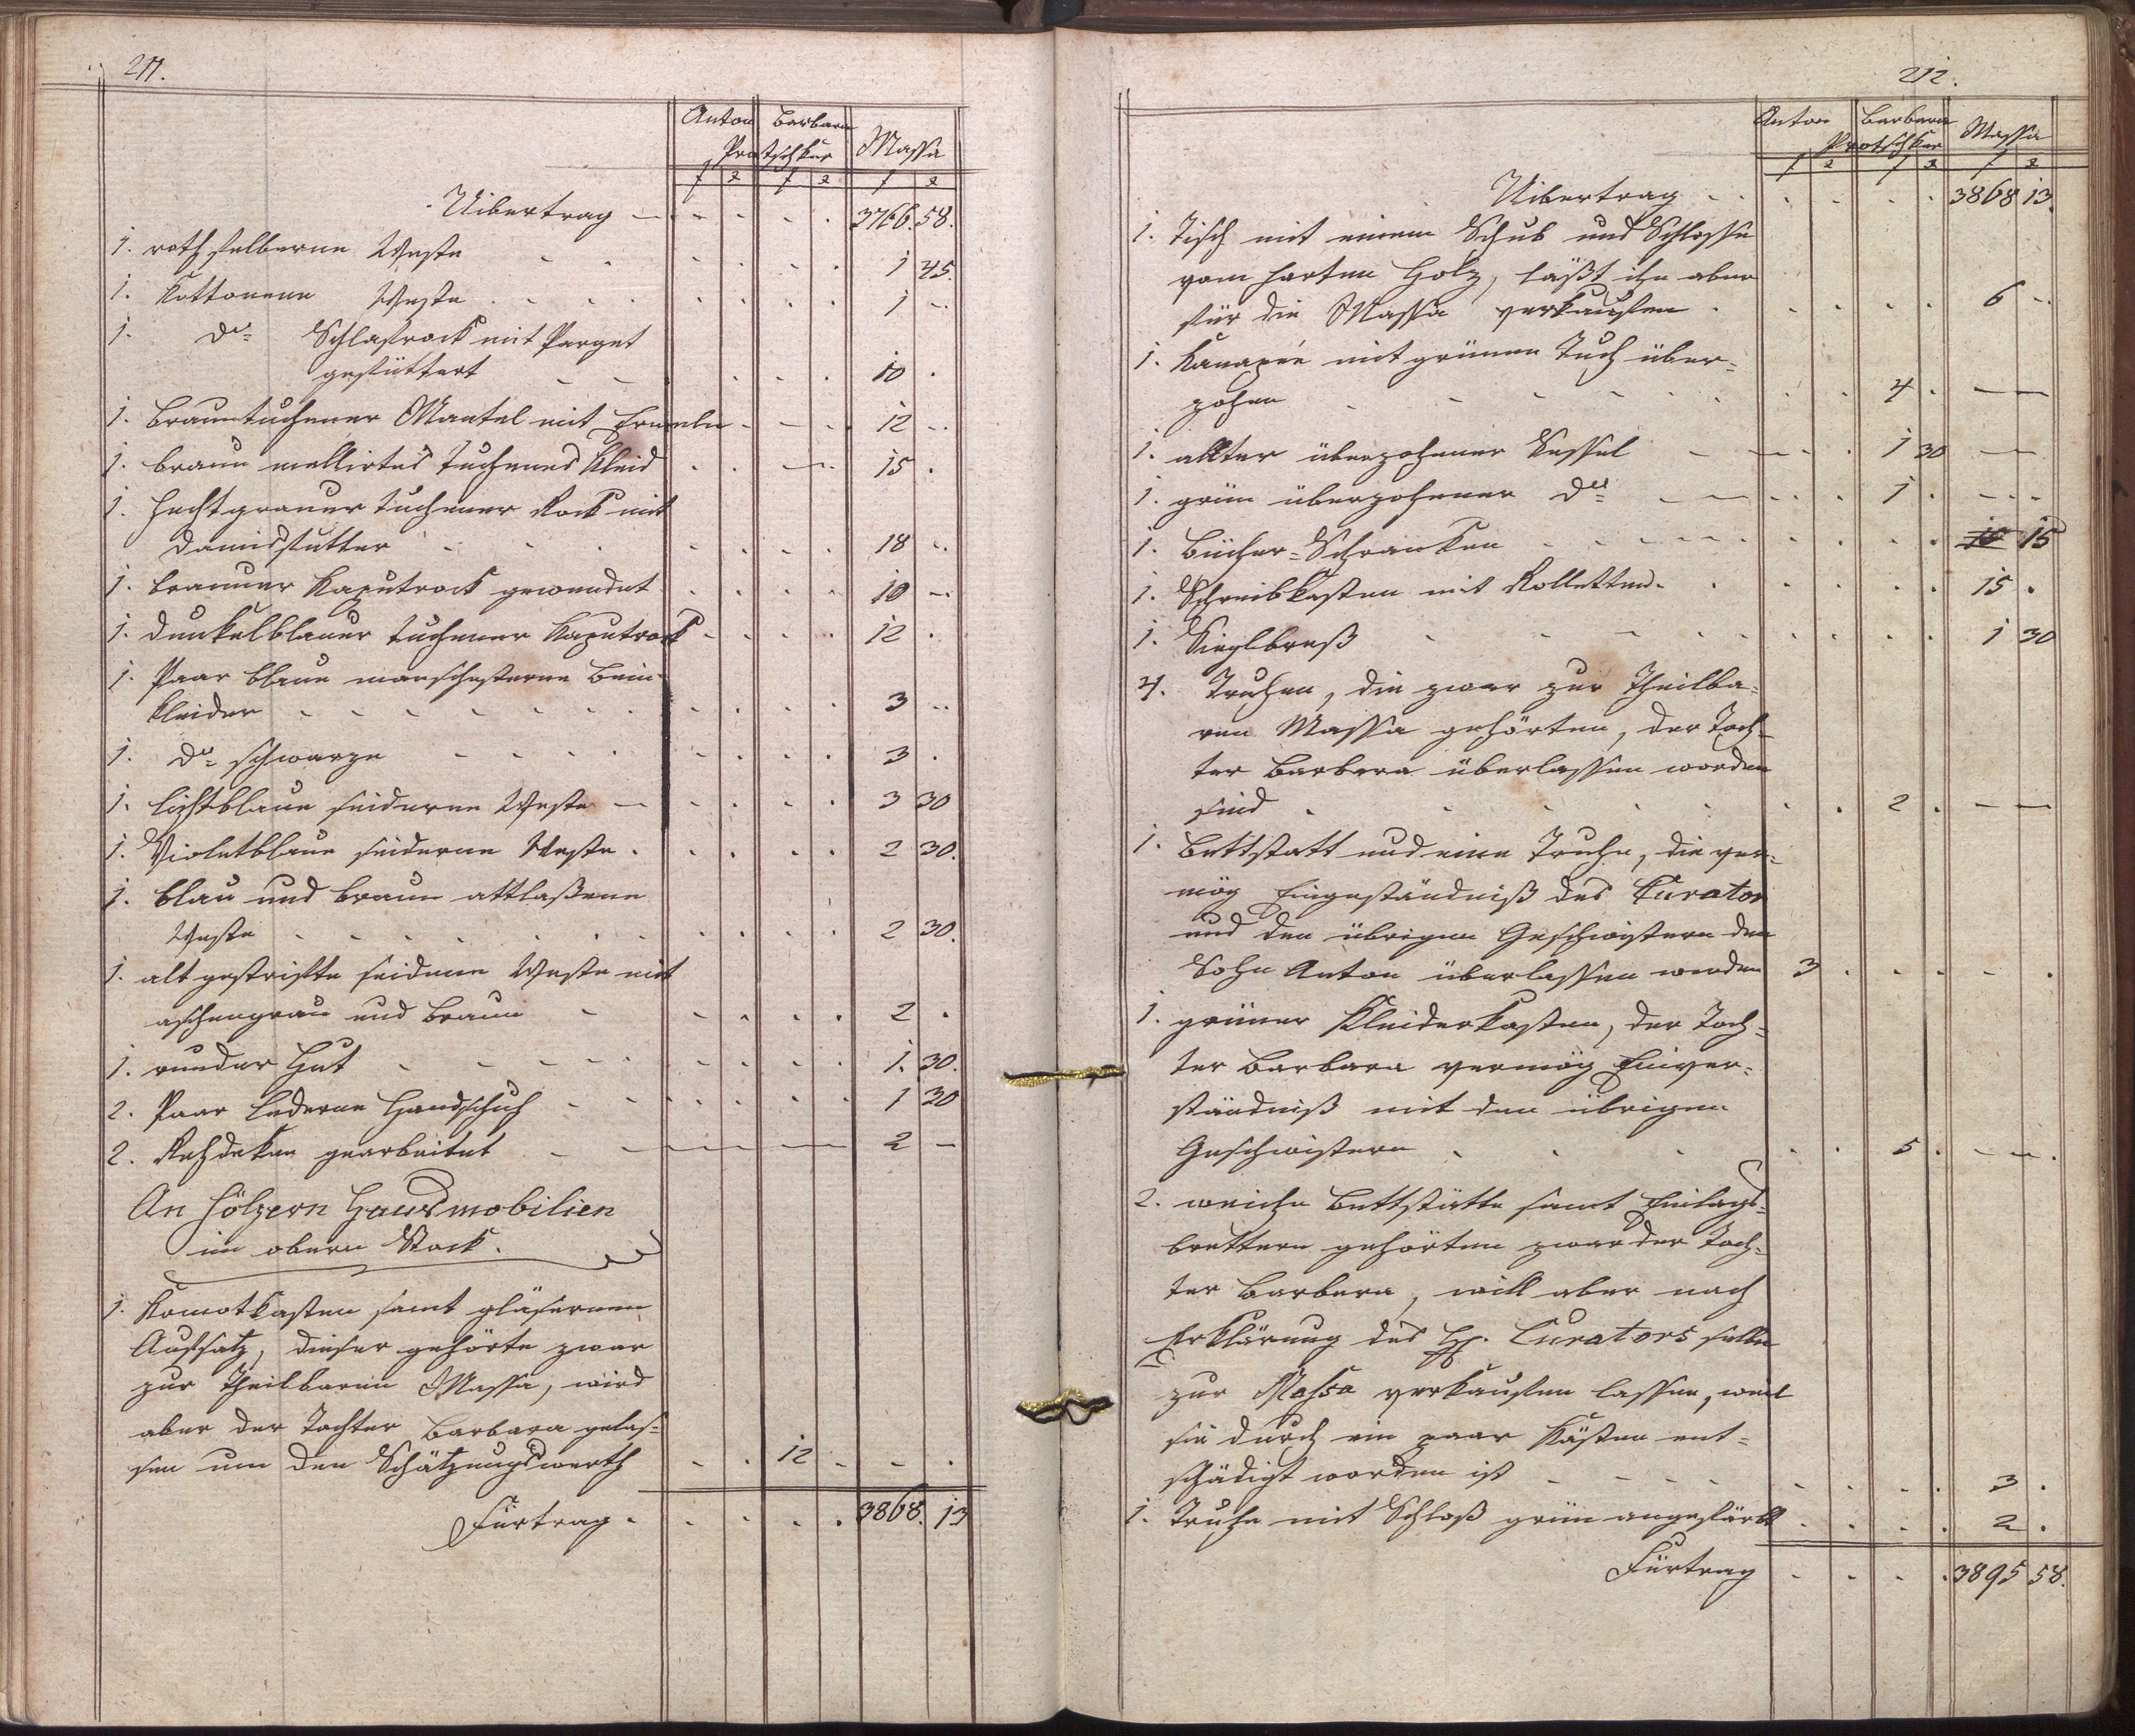 211.
Anton Barbara Massa
Protschker
f x f x f x
Uibertrag — 3766. 58.
1. roth halberne Weste 1 45.
1. Kottonene Weste 1 -
1. dto Schlafrock mit Parget
gefüttert 10 .
1. brauntuchener Mantel mit Ermeln 12 -
1. braun mellirtes tuchenes Kleid 15 .
1. hechtgrauer tuchener Rock mit
damisfutter 18 -
1. brauner Kaputrock gewendet 10 -
1. dunkelblauer tuchener Kaputrock 12 .
1. Paar blaue manschesterne Bein-
kleider 3 -
1. dto schwarze 3 .
1. lichtblaue seiderne Weste 3 30
1. Violetblaue seiderne Weste 2 30.
1. blau und braun attlaßene
Weste 2 30.
1. alt gestrifte seidene Weste mit
aschengrau und braun 2 .
1. runder Hut 1. 30.
2. Paar lederne Handschuh 1 30
2. Rehdeken gearbeitet 2 -
An hölzern Hausmobilien
im obern Stock.
1. Komotkasten samt gläsernen
Aufsatz, dieser gehörte zwar
zur Theilbaren Massa, wird
aber der Tochter Barbara gelas-
sen um den Schätzungswerth 12 -
Fürtrag. 3868. 13
212.
Anton Barbara Massa
Protschker
f x f x f x
Uibertrag 3868 13.
1. Tisch mit einem Schub und Schlosse
vom harten Holz, läßt ihn aber
für die Massa verkaufen 6 -
1. Kanapée mit grünen Tuch über-
zohen 4 . —
1. allter überzohener Sessel 1 30 —
1. grün überzohener dto 1 . -
1. Bücher-Schranken 10 15
1. Schreibkasten mit Kolletten 15 .
1. Sieglbreß 1 30
4. Truhen, die zwar zur Theilba-
ren Massa gehörten, der Toch-
ter Barbara überlassen worden
sind 2 . —
1. Bettstatt und eine Truhe, die ver-
mög Eingeständniß des Curator
und den übrigen Geschwistern dem
Sohn Anton überlassen werden 3 .
1. grüner Kleiderkasten, der Toch-
ter Barbara vermög Einver-
ständniß mit den übrigen
Geschwistern 5 . -
2. weiche Bettstätte samt Einlags-
brettern gehörten zwar der Toch-
ter Barbara, will aber nach
Erklärung des H. Curators selbe
zur Massa verkaufen lassen, weil
sie durch ein paar Kästen ent-
schädigt worden ist 3 .
1. Truhe mit Schloß grün angefärbt 2 .
Fürtrag 3895 58.